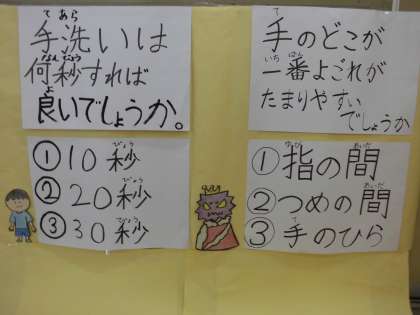 手洗いは
何秒すれば
良いでしょうか。
①10秒
②20秒
③30秒
手のどこが
一番よごれが
たまりやすい
でしょうか
①指の間
②つめの間
③手のひら